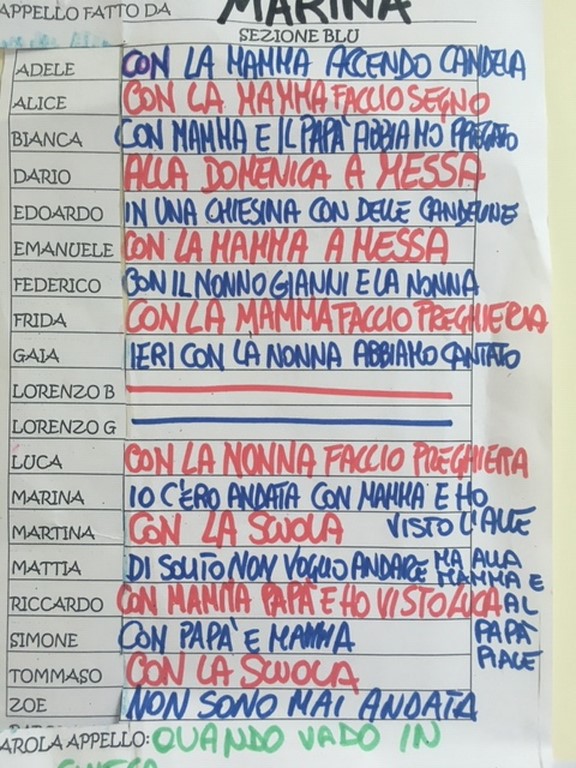 APPELLO FATTO DA MARINA
SEZIONE BLU
ADELE CON LA MAMMA ACCENDO CANDELA
ALICE CON LA MAMMA FACCIO SEGNO
BIANCA CON MAMMA E IL PAPÀ ABBIAMO PREGATO
DARIO ALLA DOMENICA A MESSA
EDOARDO IN UNA CHIESINA CON DELLE CANDELINE
EMANUELE CON LA MAMMA A MESSA
FEDERICO CON IL NONNO GIANNI E LA NONNA
FRIDA CON LA MAMMA FACCIO PREGHIERA
GAIA IERI CON LA NONNA ABBIAMO CANTATO
LORENZO B
LORENZO G
LUCA CON LA NONNA FACCIO PREGHIERA
MARINA IO C'ERO ANDATA CON MAMMA E HO
VISTO L'ALLE
MARTINA CON LA SCUOLA
MATTIA DI SOLITO NON VOGLIO ANDARE MA ALLA
MAMMA E
AL
PAPÀ
PIACE
RICCARDO CON MAMMA PAPÀ E HO VISTO LUCA
SIMONE CON PAPÀ E MAMMA
TOMMASO CON LA SCUOLA
ZOE NON SONO MAI ANDATA
AROLA APPELLO: QUANDO VADO IN